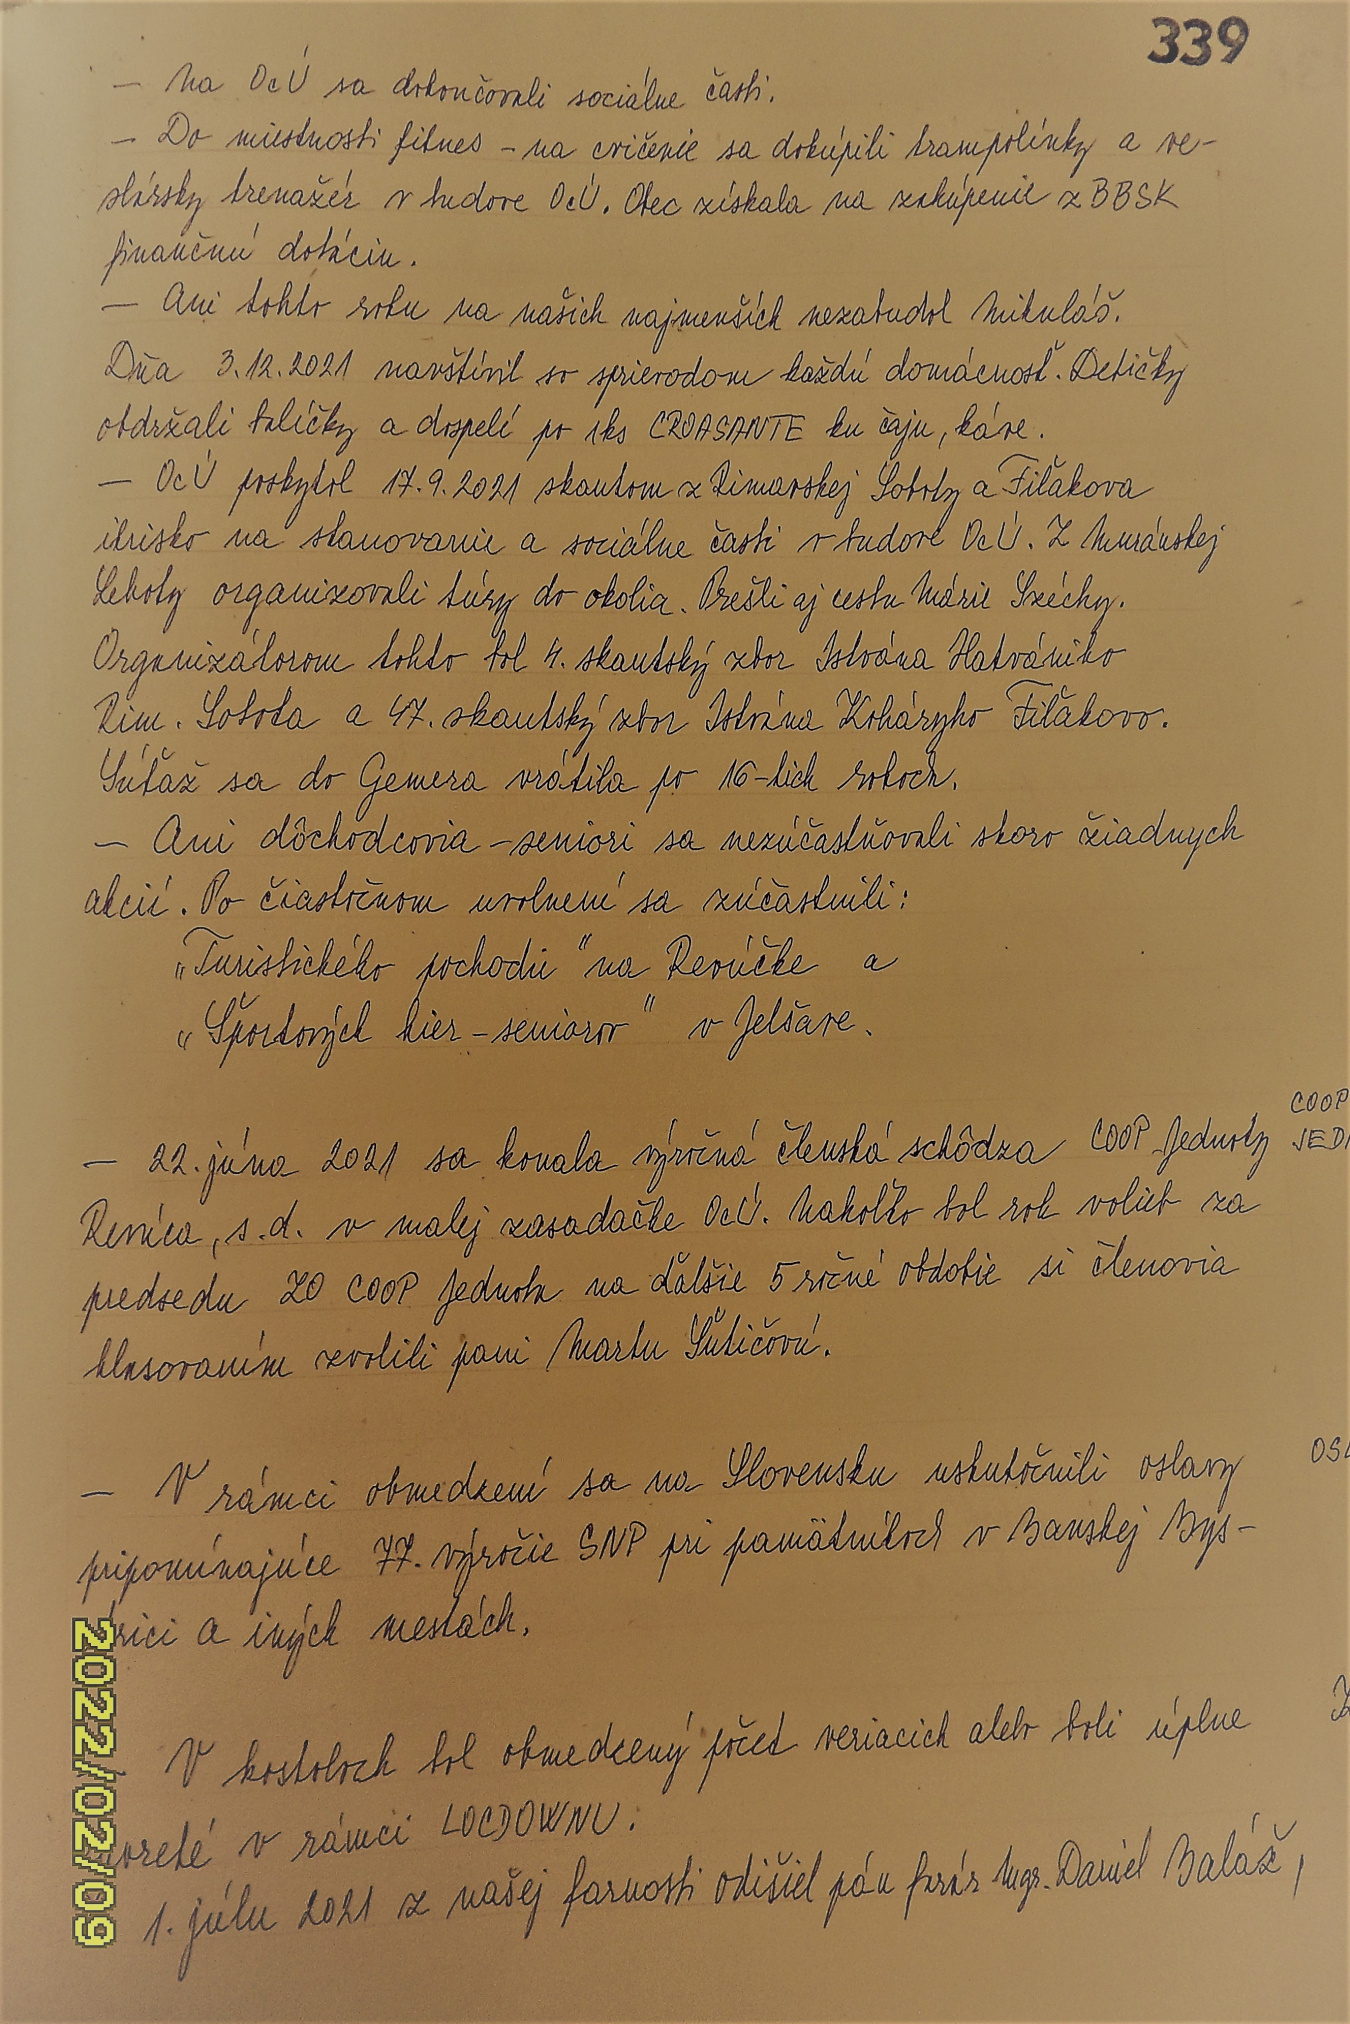 339
— Na OcÚ sa dokončovali sociálne časti.
— Do miestnosti fitnes – na cvičenie sa dokúpili trampolínky a ve-
slársky trenažér v budove OcÚ. Obec získala na zakúpenie z BBSK
finančnú dotáciu.
— Ani tohto roku na našich najmenších nezabudol Mikuláš.
Dňa 3.12.2021 navštívil so sprievodom každú domácnosť. Detičky
obdržali balíčky a dospelí po 1ks CROASANTE ku čaju, káve.
— OcÚ poskytol 17.9.2021 skautom z Rimavskej Soboty a Fiľakova
ihrisko na stanovanie a sociálne časti v budove OcÚ. Z Muránskej
Lehoty organizovali túry do okolia. Prešli aj cestu Márie Széchy.
Organizátorom tohto bol 4. skautský zbor Istvána Hatvániho
Rim. Sobota a 47. skautský zbor Istvána Koháryho Fiľakovo.
Súťaž sa do Gemera vrátila po 16-tich rokoch.
— Ani dôchodcovia – seniori sa nezúčastňovali skoro žiadnych
akcií. Po čiastočnom uvolnení sa zúčastnili:
„Turistického pochodu" na Revúčke a
„Športových hier – seniorov" v Jelšave.
— 22. júna 2021 sa konala výročná členská schôdza COOP Jednoty
COOP
JED
Revúca, s.d. v malej zasadačke OcÚ. Nakoľko bol rok volieb za
predsedu ZO COOP Jednota na ďalšie 5 ročné obdobie si členovia
hlasovaním zvolili pani Martu Šutičovú.
— V rámci obmedzení sa na Slovensku uskutočnili oslavy
OSL
pripomínajúce 77. výročie SNP pri pamätníkoch v Banskej Bys-
trici a iných mestách.
V kostoloch bol obmedzený počet veriacich alebo boli úplne
zavreté v rámci LOCDOWNU.
1. júlu 2021 z našej farnosti odišiel pán farár Mgr. Daniel Baláž,
2022/02/09